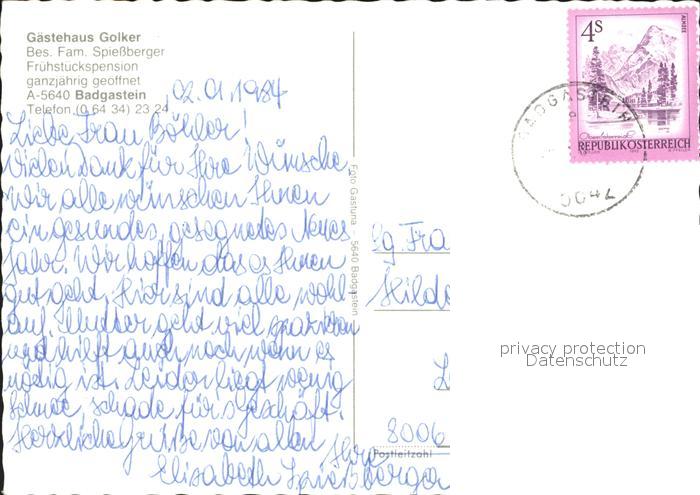 Gästehaus Golker
Bes. Fam. Spießberger
Frühstückspension
ganzjährig geöffnet
A-5640 Badgastein
Telefon (0 64 34) 23 24
02.01.1984
Liebe Frau Böhler!
Vielen Dank für Ihre Wünsche,
wir alle wünschen Ihnen
ein gesundes, gesegnetes Neues
Jahr. Wir hoffen das es Ihnen
gut geht. Hier sind alle wohl-
auf. Mutter geht viel spazieren
und hilft auch noch wenn es
nötig ist. Leider liegt wenig
Schnee, schade für's Geschäft.
Herzliche Grüße von allen
Ihre
Elisabeth Spießberger
Foto Gastuna - 5640 Badgastein
4S
ALMSEE
REPUBLIK ÖSTERREICH
BADGASTEIN
Fra
Hilde
8006
Postleitzahl
privacy protection
Datenschutz